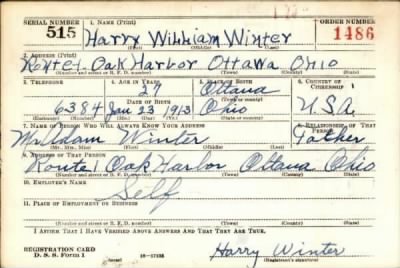 SERIAL NUMBER 1. NAME (Print) ORDER NUMBER
515 Harry William Winter 1486
(First) (Middle) (Last)
2. ADDRESS (Print)
Route 1 Oak Harbor Ottawa Ohio
(Number and street or R. F. D. number) (Town) (County) (State)
3. TELEPHONE 4. AGE IN YEARS 5. PLACE OF BIRTH 6. COUNTRY OF CITIZENSHIP
27 Ottawa
(Town or county)
DATE OF BIRTH
6384 Jan. 23 1913 Ohio U.S.A.
(Mo.) (Day) (Yr.) (State or country)
7. NAME OF PERSON WHO WILL ALWAYS KNOW YOUR ADDRESS 8. RELATIONSHIP OF THAT PERSON
Mr Adam Winter Father
(Mr., Mrs., Miss) (First) (Middle) (Last)
9. ADDRESS OF THAT PERSON
Route 1 Oak Harbor Ottawa Ohio
(Number and street or R. F. D. number) (Town) (County) (State)
10. EMPLOYER'S NAME
Self
11. PLACE OF EMPLOYMENT OR BUSINESS
(Number and street or R. F. D. number) (Town) (County) (State)
I AFFIRM THAT I HAVE VERIFIED ABOVE ANSWERS AND THAT THEY ARE TRUE.
REGISTRATION CARD
D. S. S. Form 1 Harry Winter
(Registrant's signature)